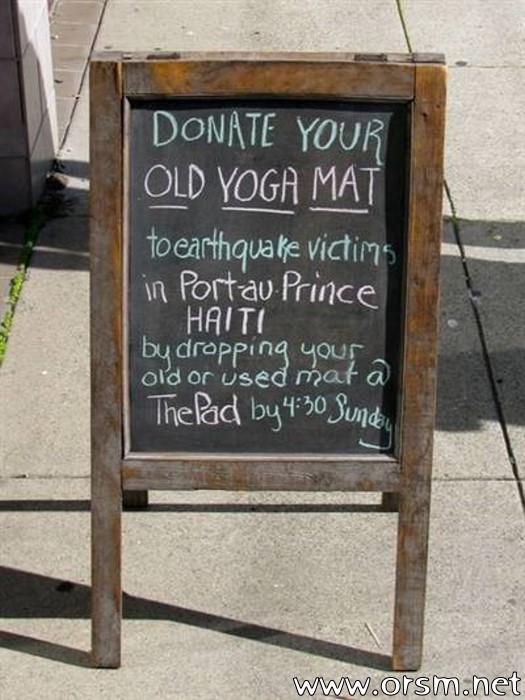 DONATE YOUR
OLD YOGA MAT
to earthquake victims
in Port-au-Prince
HAITI
by dropping your
old or used mat @
The Pad by 4:30 Sunday
www.orsm.net